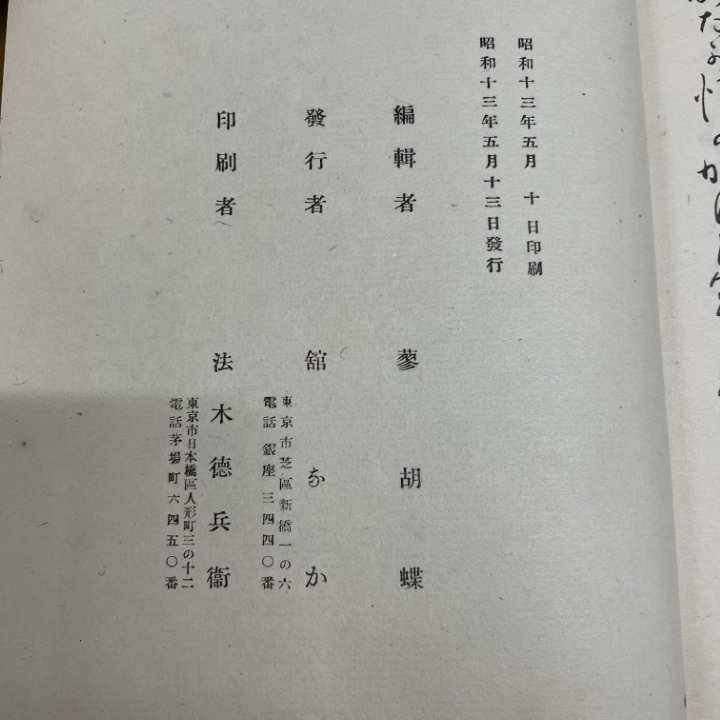 昭和十三年五月 十 日印刷
昭和十三年五月十三日發行
編輯者 蓼胡蝶
發行者 舘なか
東京市芝區新橋一の六
電話銀座三四四〇番
印刷者 法木德兵衞
東京市日本橋區人形町三の十二
電話茅場町六四五〇番